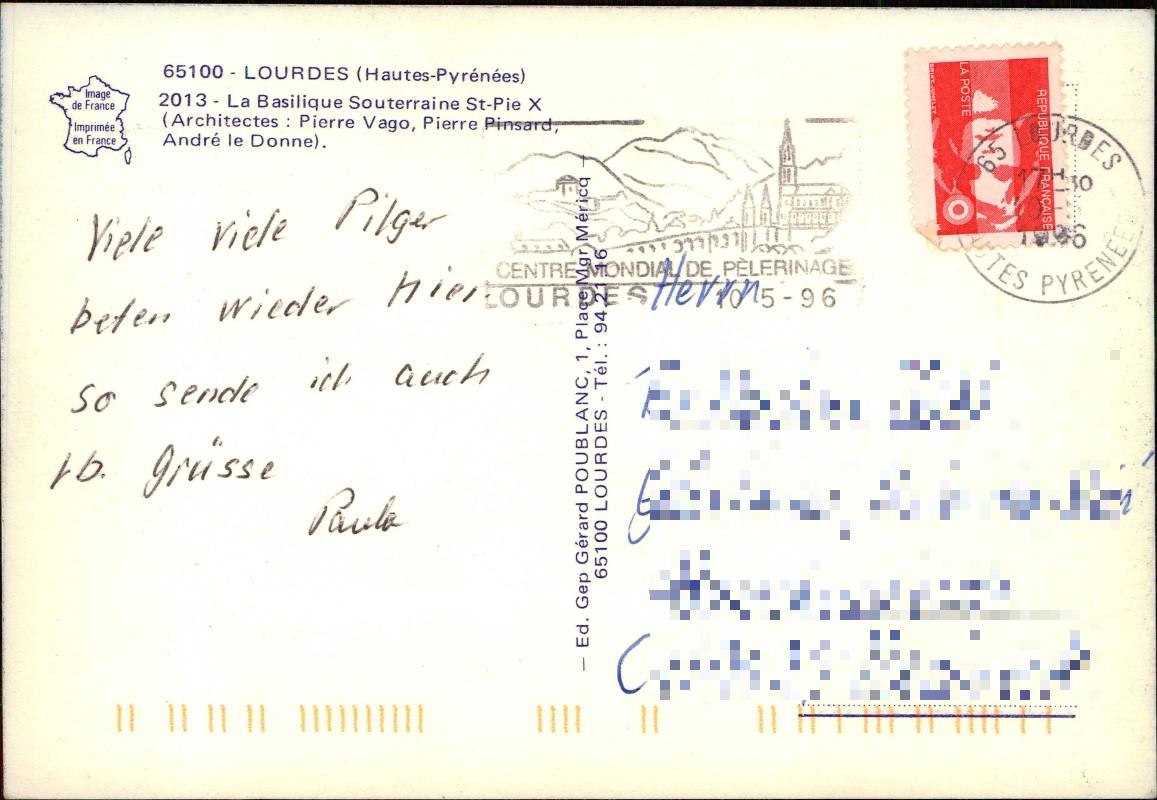 65100 - LOURDES (Hautes-Pyrénées)
2013 - La Basilique Souterraine St-Pie X
(Architectes : Pierre Vago, Pierre Pinsard,
André le Donne).
Image
de France
Imprimée
en France
Viele viele Pilger
beten wieder hier
so sende ich auch
lb. Grüsse
Paula
— Ed. Gep Gérard POUBLANC, 1, Place Mgr Méricq —
65100 LOURDES - Tél. : 94 21 16
CENTRE MONDIAL DE PÈLERINAGE
LOURDES 10-5-96
LA POSTE
REPUBLIQUE FRANÇAISE
65 LOURDES
1996
HAUTES PYRENEES
Herrn